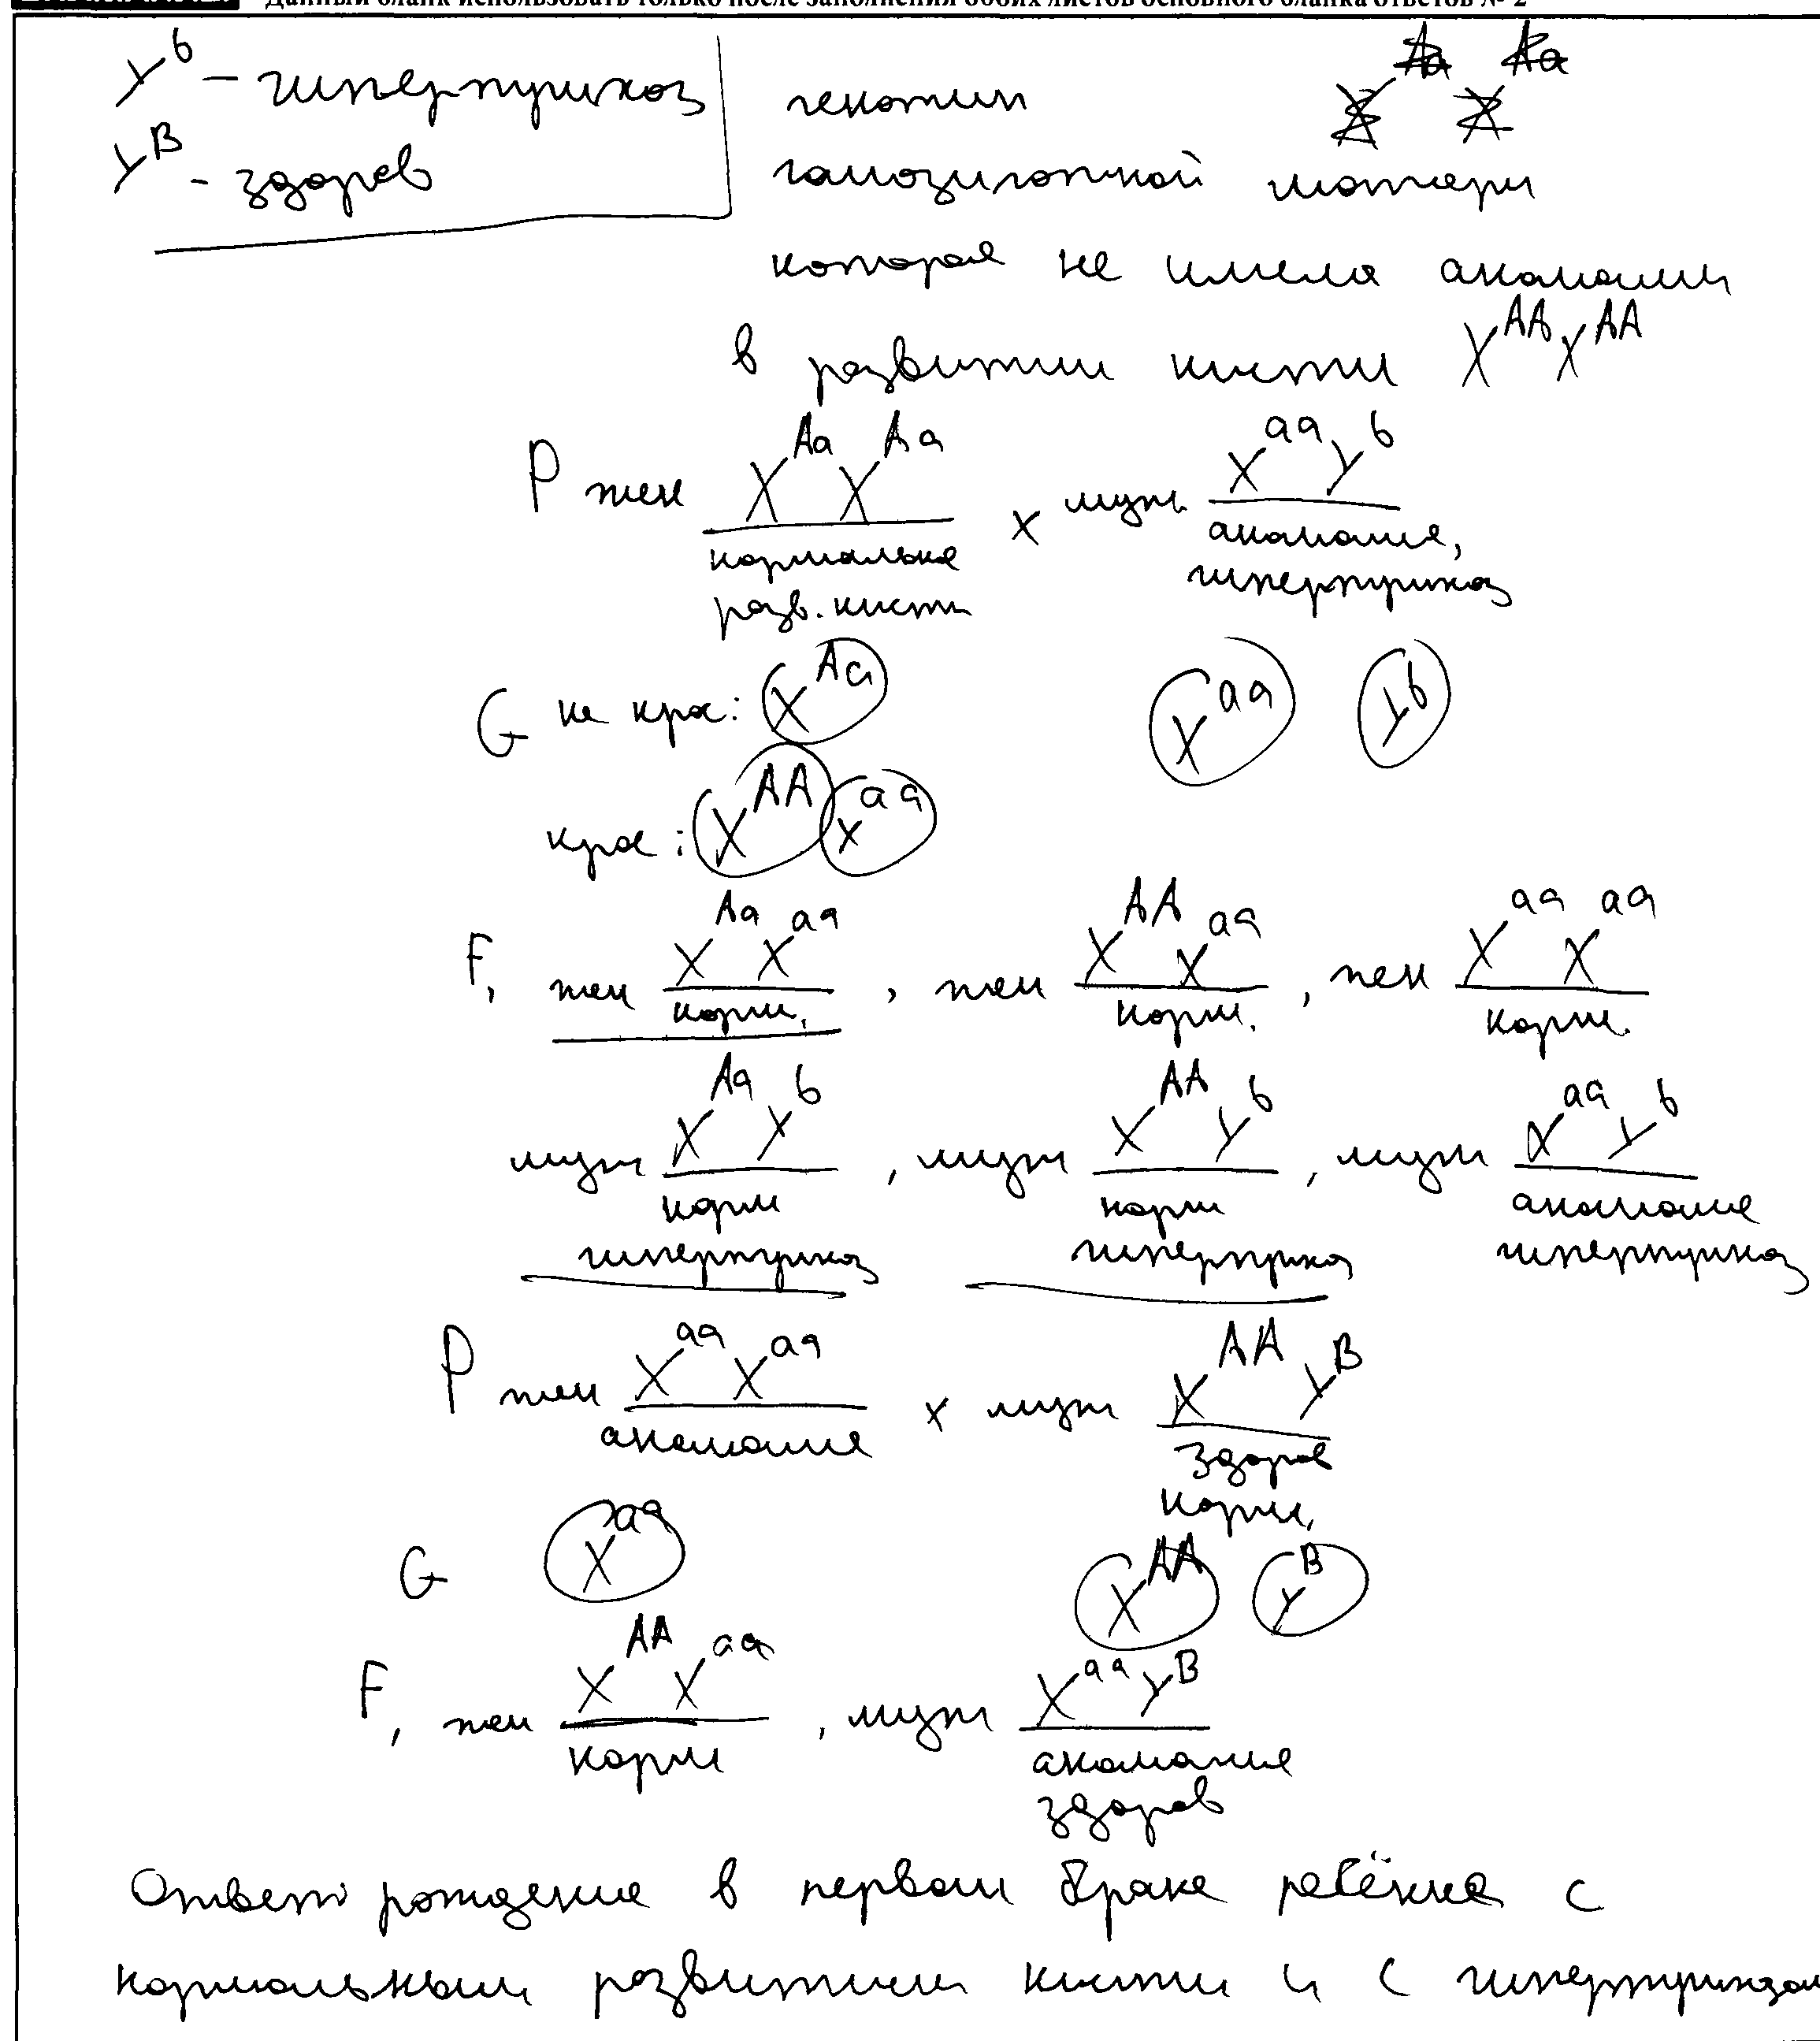 Данный бланк использовать только после заполнения обоих листов основного бланка ответов № 2
Y^b – гипертрихоз
Y^B - здоров
генотип
гомозиготной матери
которая не имела аномалии
в развитии кисти X^AA X^AA
P жен X^Aa X^Aa x муж X^aa Y^b
нормальное разв. кисти
аномалия, гипертрихоз
G не крос: X^Aa X^aa Y^b
крос: X^AA X^aa
F, жен X^Aa X^aa , жен X^AA X^aa , жен X^aa X^aa
норм. норм. норм.
муж X^Aa Y^b , муж X^AA Y^b , муж X^aa Y^b
норм норм аномалия
гипертрихоз гипертрихоз гипертрихоз
P жен X^aa X^aa x муж X^AA Y^B
аномалия здоров
норм.
G X^aa X^AA Y^B
F, жен X^AA X^aa , муж X^aa Y^B
норм аномалия
здоров
Ответ: рождение в первом браке ребёнка с
нормальным развитием кисти и с гипертрихозом